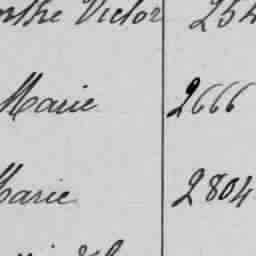 Victor 254
Marie 2666
Marie 2804